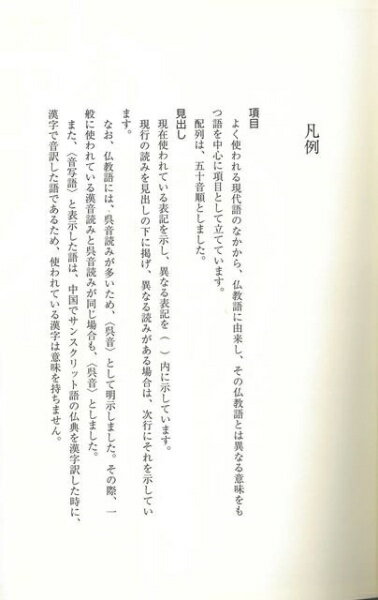 凡例
項目
よく使われる現代語のなかから、仏教語に由来し、その仏教語とは異なる意味をも
つ語を中心に項目として立てています。
配列は、五十音順としました。
見出し
現在使われている表記を示し、異なる表記を（　）内に示しています。
現行の読みを見出しの下に掲げ、異なる読みがある場合は、次行にそれを示してい
ます。
なお、仏教語には、呉音読みが多いため、〈呉音〉として明示しました。その際、一
般に使われている漢音読みと呉音読みが同じ場合も、〈呉音〉としました。
また、〈音写語〉と表示した語は、中国でサンスクリット語の仏典を漢字訳した時に、
漢字で音訳した語であるため、使われている漢字は意味を持ちません。